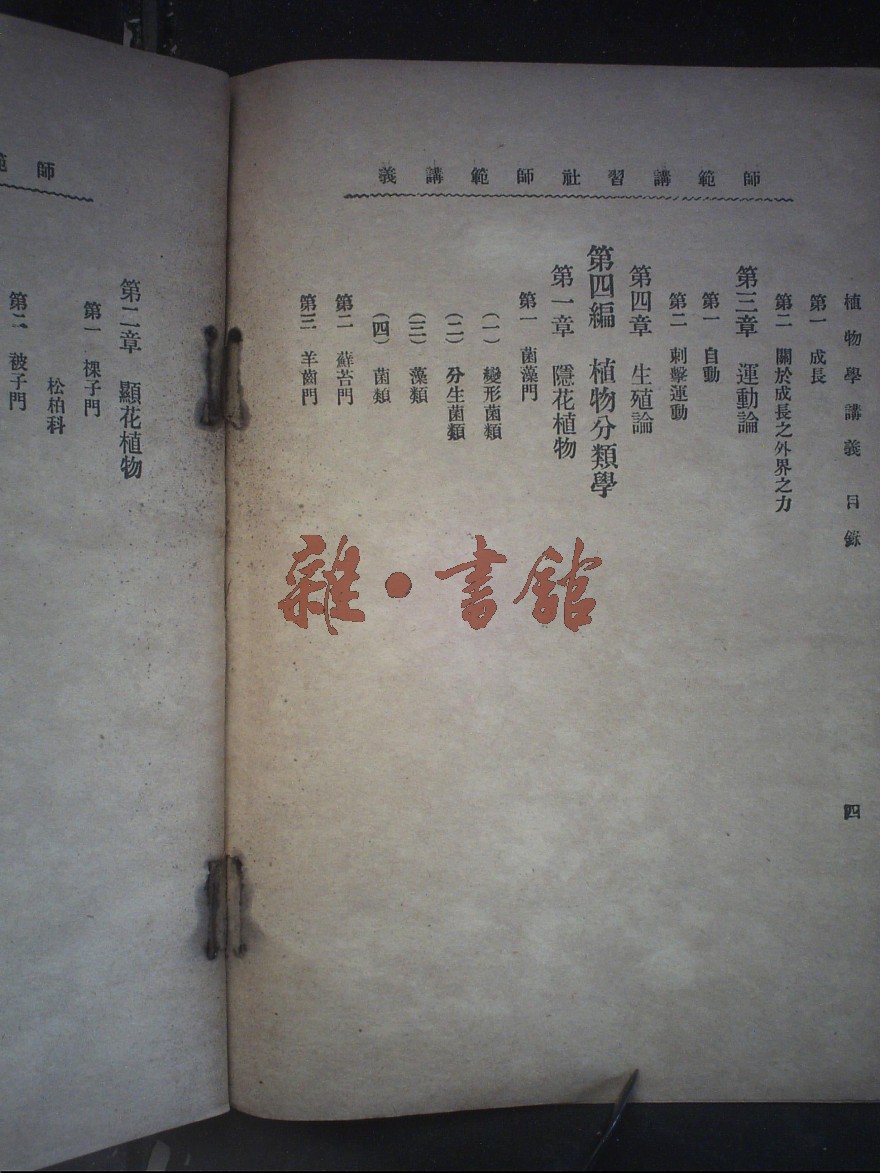 師範講習社師範講義
植物學講義 目錄
四
第一 成長
第二 關於成長之外界之力
第三章 運動論
第一 自動
第二 刺擊運動
第四章 生殖論
第四編 植物分類學
第一章 隱花植物
第一 菌藻門
(一) 變形菌類
(二) 分生菌類
(三) 藻類
(四) 菌類
第二 蘚苔門
第三 羊齒門
師範
第二章 顯花植物
第一 裸子門
松柏科
第二 被子門
雜·書館